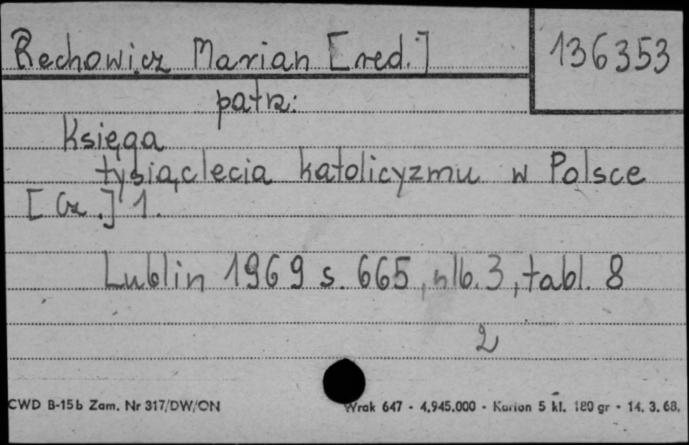 Rechowicz Marian [red.] 136353
patrz:
Księga
tysiąclecia katolicyzmu w Polsce
[Cz.] 1.
Lublin 1969 s. 665, nlb. 3, tabl. 8
2
CWD B-15b Zam. Nr 317/DW/ON Wrak 647 - 4,945.000 - Karton 5 kl. 180 gr - 14. 3. 68.